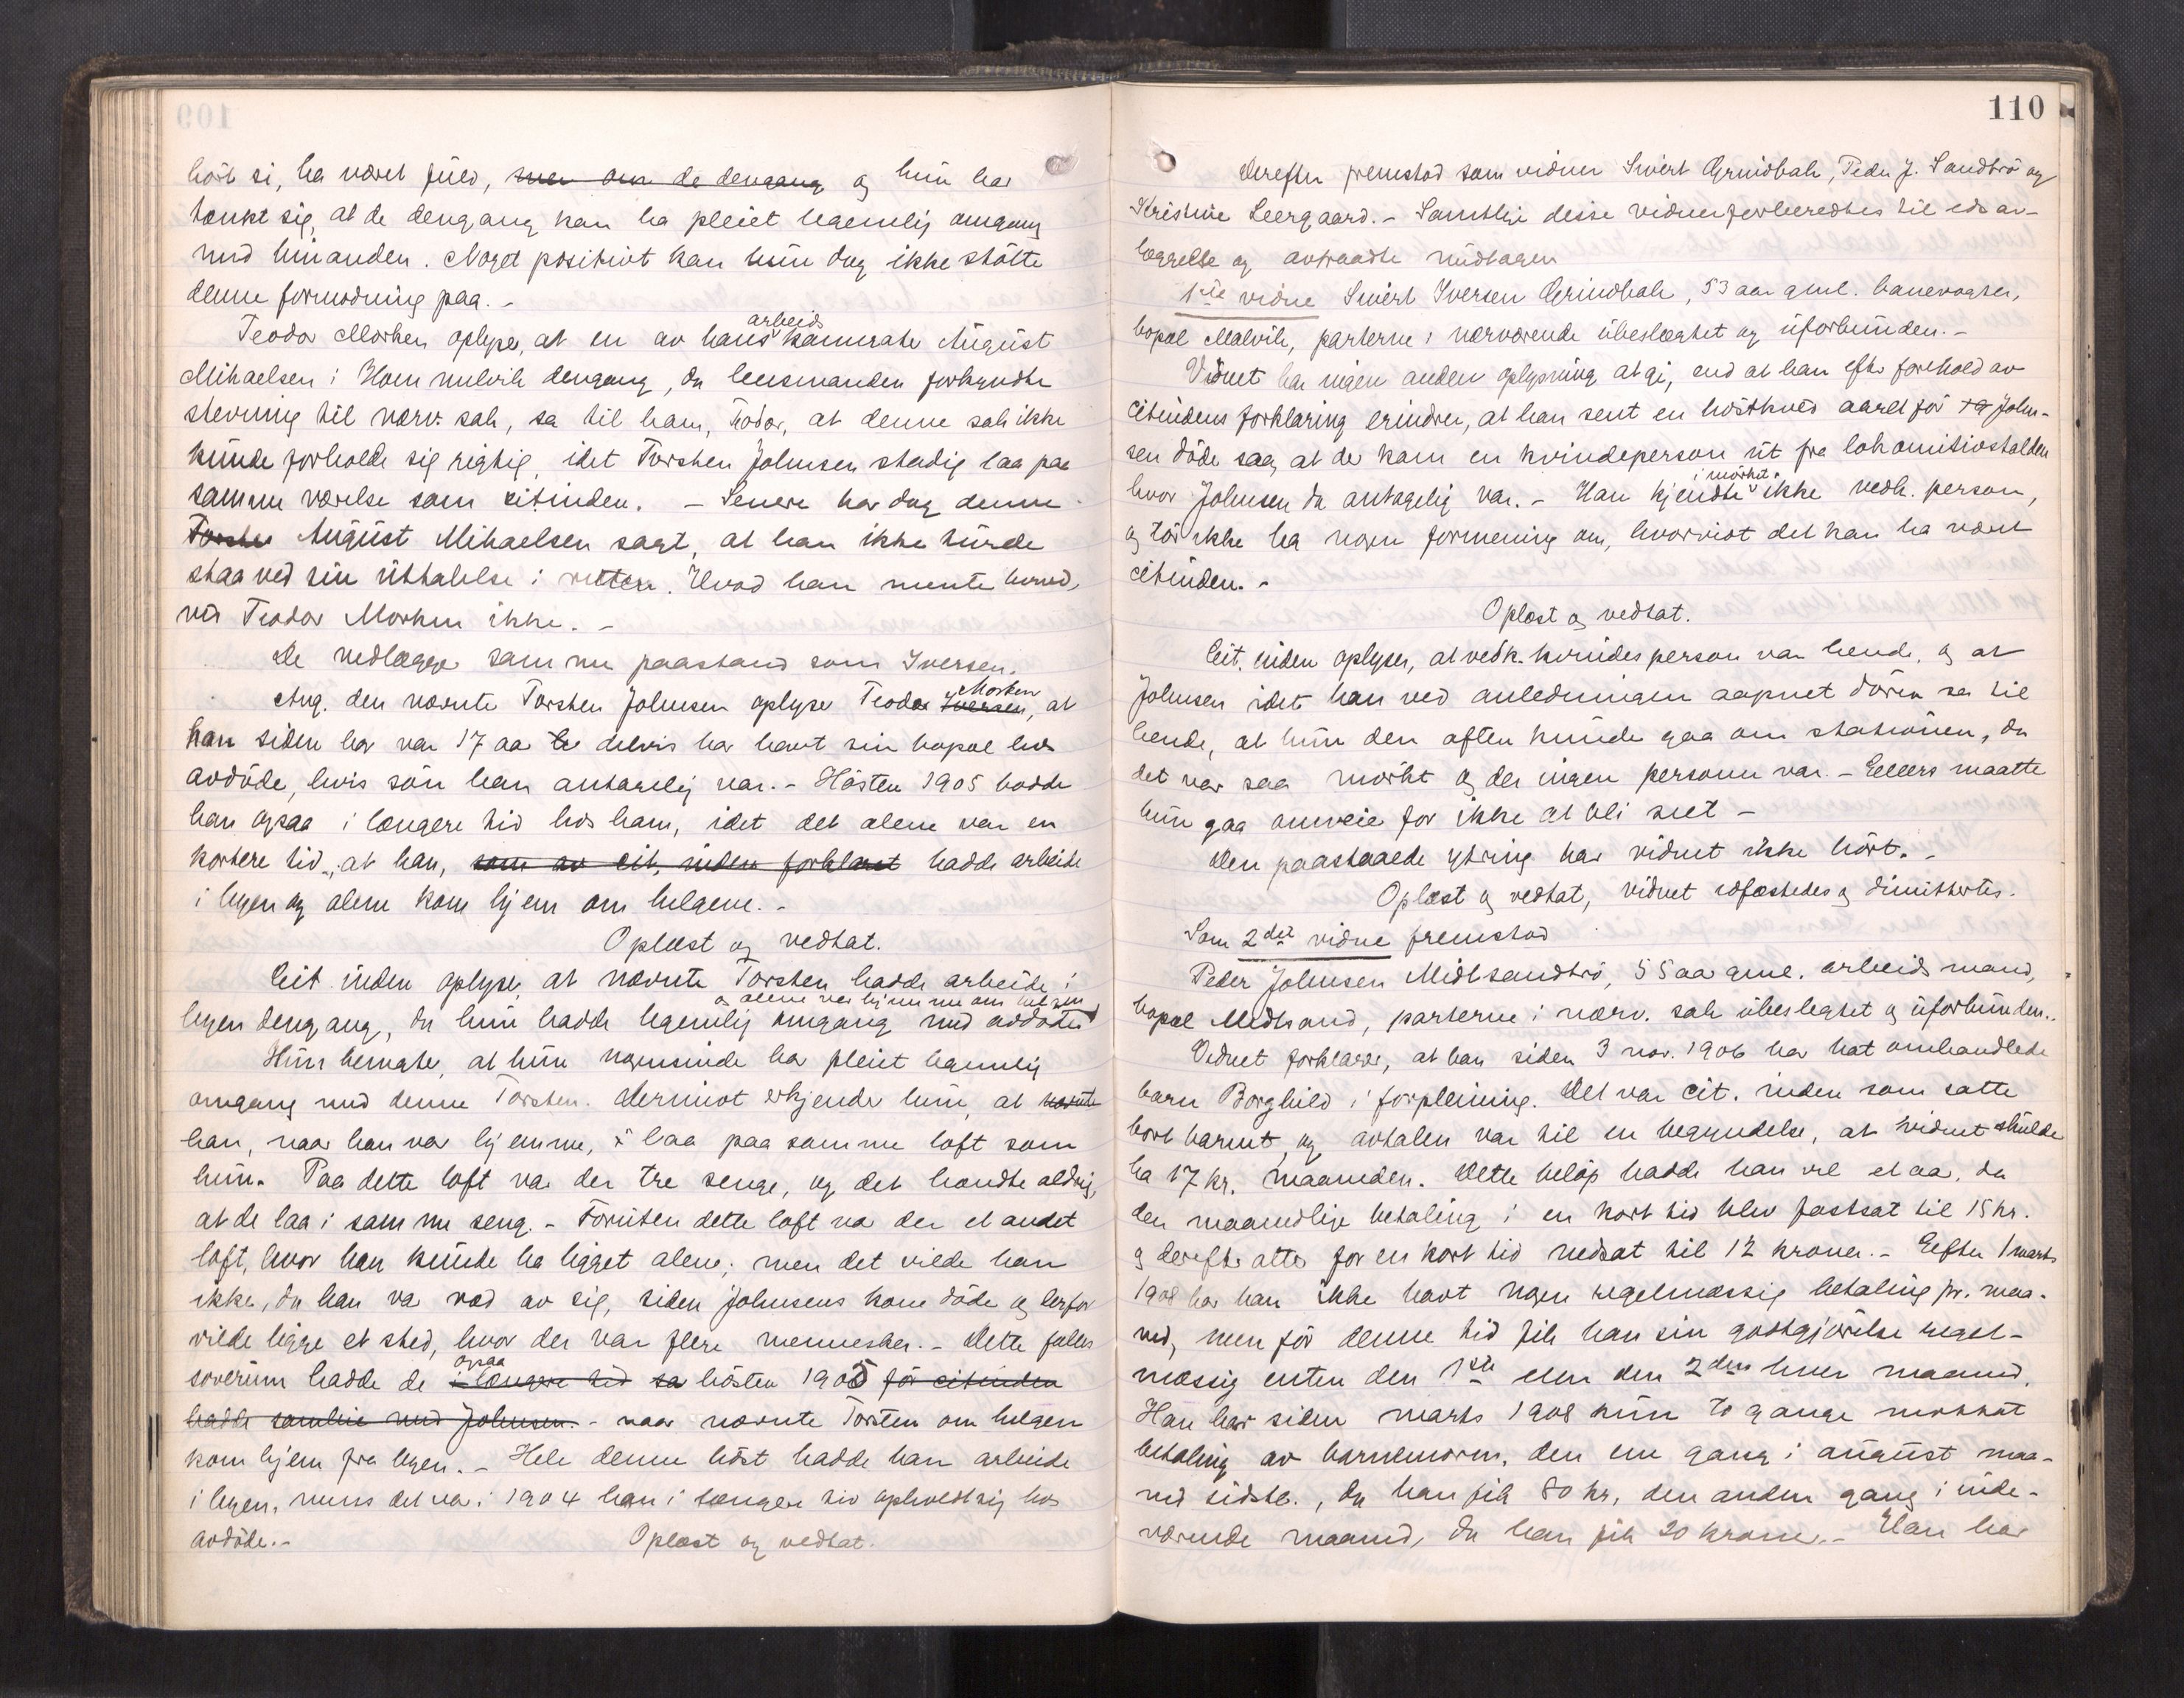 109
hört si, ha været fuld, men om de dengang og hun har
tænkt sig, at de dengang kan ha pleiet legemlig omgang
med hinanden. Noget positivt kan hun dog ikke stötte
denne formodning paa. -
Teodor Morken oplyser, at en av hans arbeids kamerater August
Mihaelsen i Hommelvik dengang, da lensmanden forkyndte
stevning til nærv. sak, sa til ham, Teodor, at denne sak ikke
kunde forholde sig rigtig, idet Torsten Johnsen stadig laa paa
samme værelse som citinden. - Senere har dog denne
Torsten August Mihaelsen sagt, at han ikke turde
staa ved sin uttalelse i retten. Hvad han mente herved,
vet Teodor Morken ikke. -
De nedlægger samme paastand som Iversen.
Ang. den nævnte Torsten Johnsen oplyser Teodor Iversen Morken, at
han siden han var 17 aar delvis har havt sin bopæl hos
avdöde, hvis sön han antagelig var. - Hösten 1905 bodde
han ogsaa i længere tid hos ham, idet det alene var en
kortere tid, at han, som av cit. inden forklaret hadde arbeide
i byen og alene kom hjem om helgene. -
Oplæst og vedtat.
Cit. inden oplyser, at nævnte Torsten hadde arbeide i
og alene var hjemme om helgen
byen dengang, da hun hadde legemlig omgang med avdöde.
Hun benegter, at hun nogensinde har pleiet legemlig
omgang med denne Torsten. Derimot erkjender hun, at nævnte
han, naar han var hjemme, laa paa samme loft som
hun. Paa dette loft var der tre senge, og det hændte aldrig,
at de laa i samme seng. - Foruten dette loft var der et andet
loft, hvor han kunde ha ligget alene; men det vilde han
ikke, da han var ræd av sig, siden Johnsens kone döde og derfor
vilde ligge et sted, hvor der var flere mennesker. - Dette fælles
soverum hadde de i længere tid ogsaa hösten 1905 för citinden
hadde samleie med Johnsen. - naar nævnte Torsten om helgen
kom hjem fra byen. - Hele denne höst hadde han arbeide
i byen, mens det var i 1904 han i længere tid opholdt sig hos
avdöde. - Oplæst og vedtat.
110
Derefter fremstod som vidner Sivert Grindbak, Peder J. Sandbrö og
Kristine Leergaard. - Samtlige disse vidner forberedtes til eds av-
læggelse og avtraadte midlagen
1ste vidne Sivert Iversen Grindbak, 53 aar gml. banevogter,
bopæl Malvik, parterne i nærværende ubeslægtet og uforbunden. -
Vidnet har ingen anden oplysning at gi, end at han efter forehold av
Citindens forklaring erindrer, at han sent en höstkveld aaret för John-
sen döde saa, at der kom en kvindeperson ut fra lokomotivstalden
hvor Johnsen da antagelig var. - Han kjendte i mörket ikke vedk. person,
og tör ikke ha nogen formening om, hvorvidt det kan ha været
citinden. -
Oplæst og vedtat.
Cit. inden oplyser, at vedk. kvindesperson var hende, og at
Johnsen idet han ved anledningen aapnet dören sa til
hende, at hun den aften kunde gaa om stationen, da
det var saa mörkt og der ingen personer var. - Eellers maatte
hun gaa omveie for ikke at bli seet -
Den paastaaede ytring har vidnet ikke hört. -
Oplæst og vedtat, vidnet edfæstedes og dimittertes.
Som 2det vidne fremstod
Peder Johnsen Midtsandbrö, 55 aar gml. arbeidsmand,
bopæl Midtsand, parterne i nærv. sak ubeslegtet og uforbunden.
Vidnet forklarer, at han siden 3 nov. 1906 har hat omhandlede
barn Borghild i forpleining. Det var cit. inden som satte
bort barnet, og avtalen var til en begyndelse, at vidnet skulde
ha 17 kr. maaneden. Dette belöp hadde han vel et aar, da
den maanedlige betaling i en kort tid blev fastsat til 15 kr.
og derefter atter for en kort tid nedsat til 12 kroner. - Eefter 1 marts
1908 har han ikke havt nogen regelmæssig betaling pr. maa-
ned, men för denne tid fik han sin godtgjörelse regel-
mæssig enten den 1ste eller den 2den hver maaned.
Han har siden marts 1908 kun to gange mottat
betaling av barnemoren, den ene gang i august maa-
ned sidstl., da han fik 80 kr, den anden gang i inde-
værende maaned, da han fik 20 kroner. - Han har